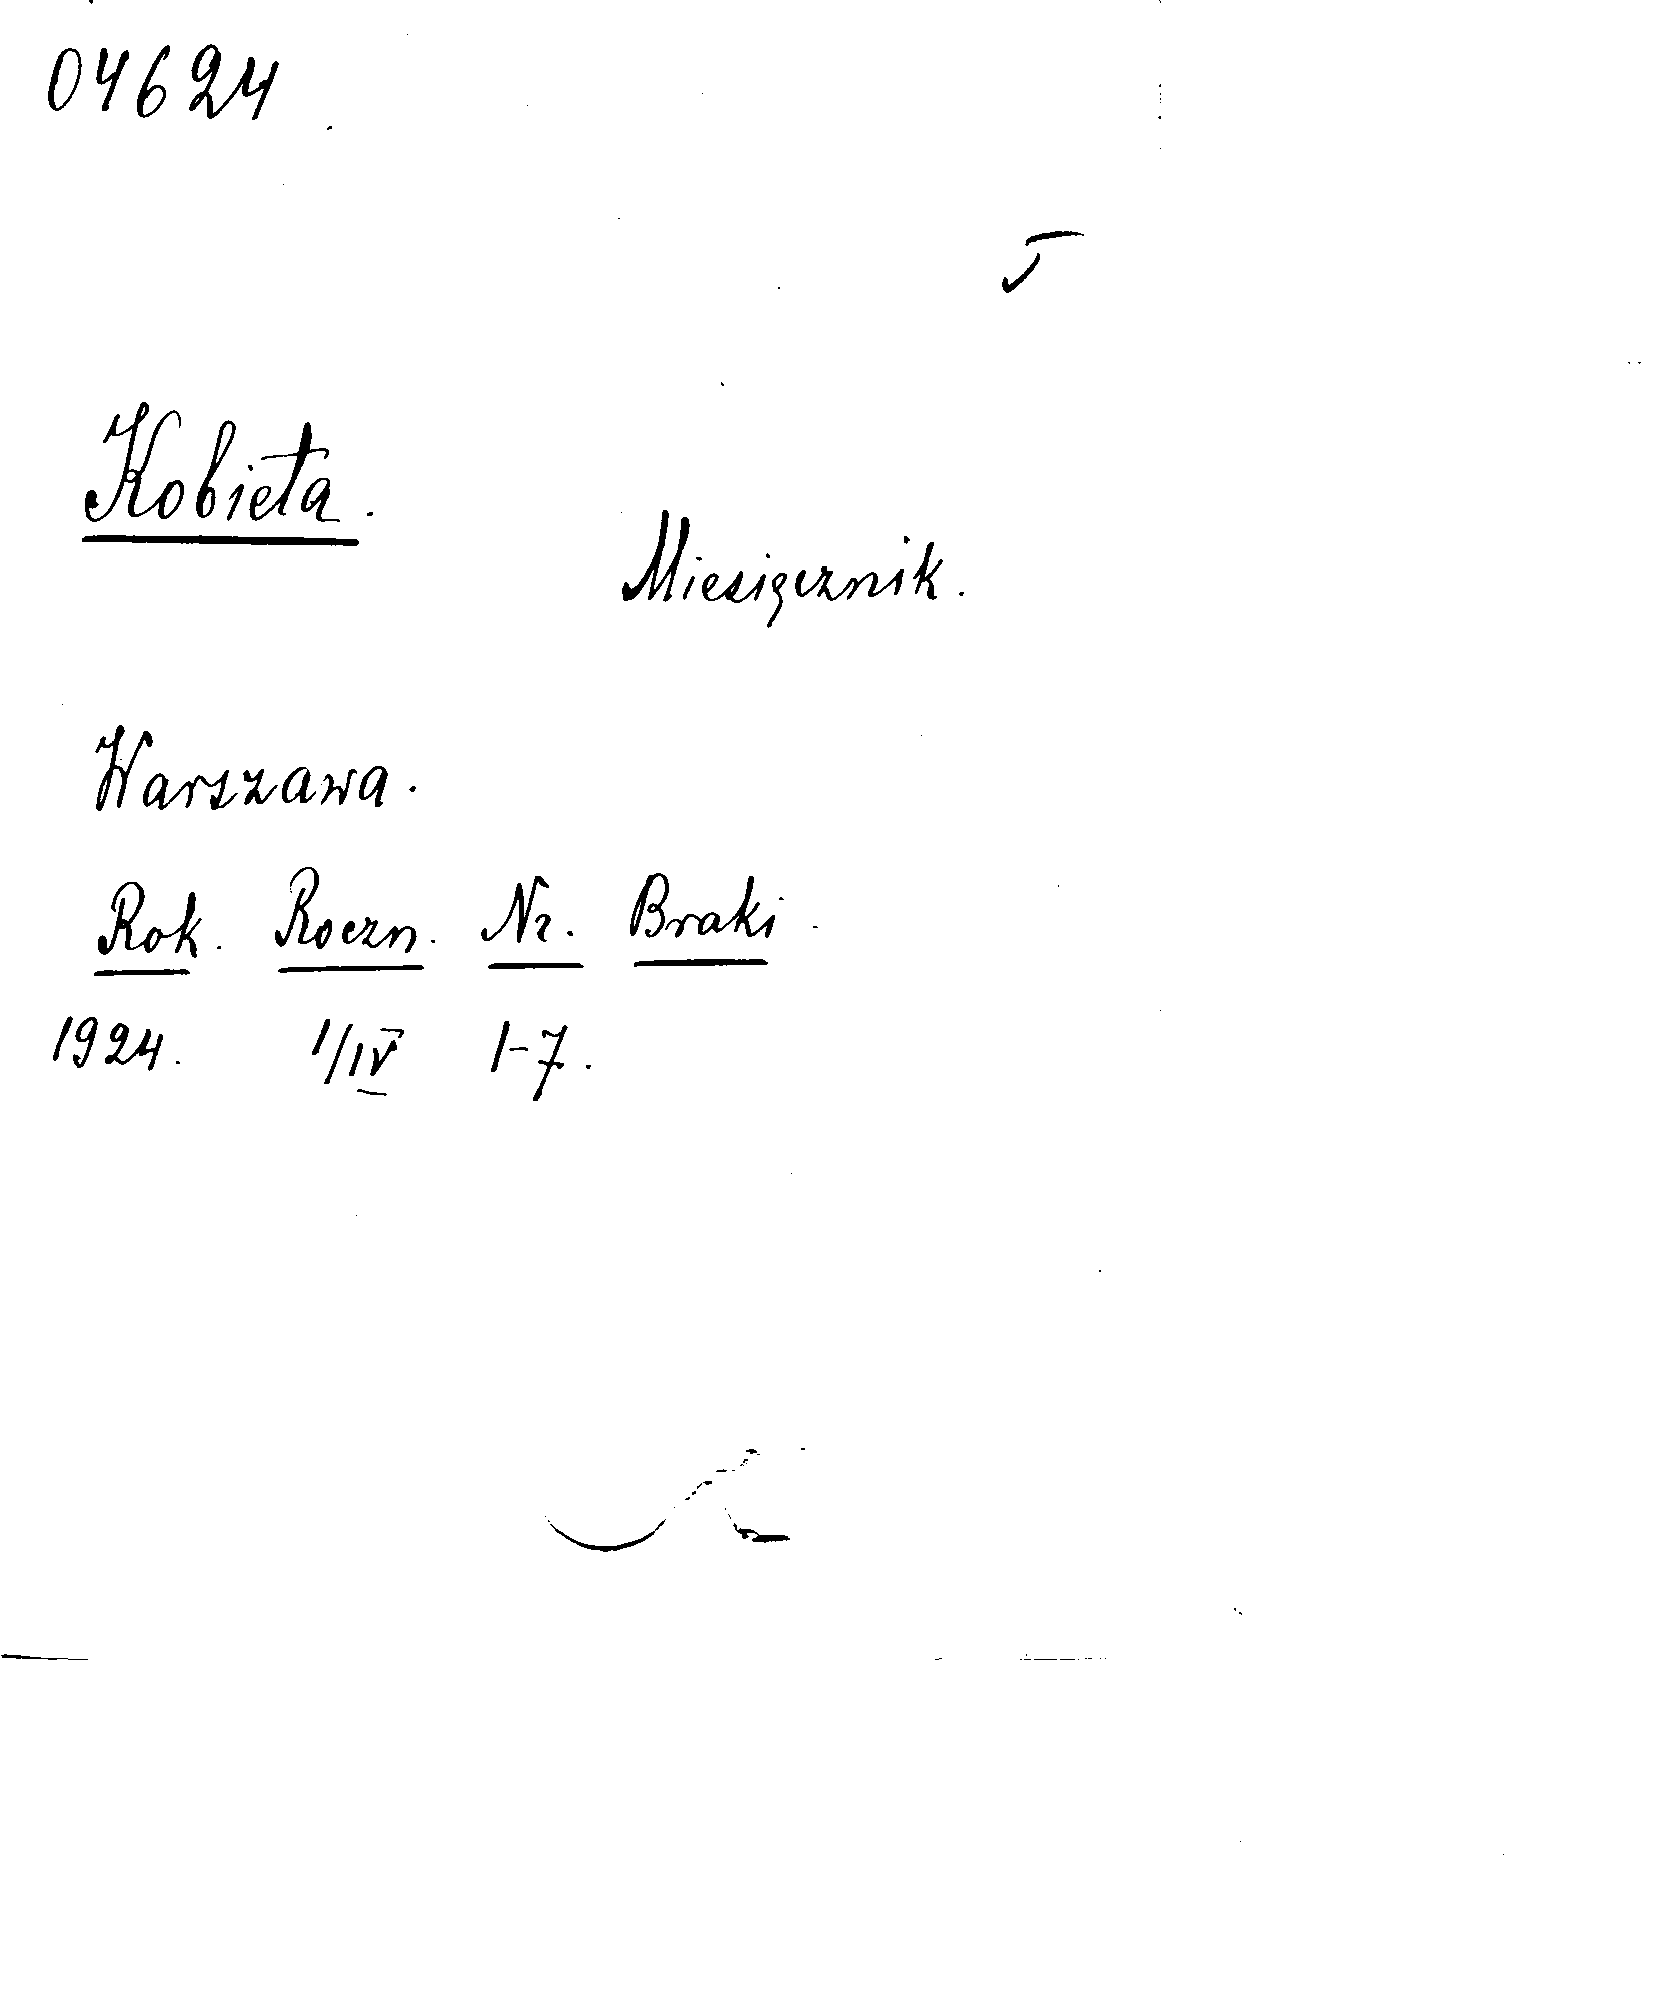 04624
Kobieta.
Miesięcznik.
Warszawa.
Rok. Roczn. Nr. Braki
1924. 1/IV 1-7.